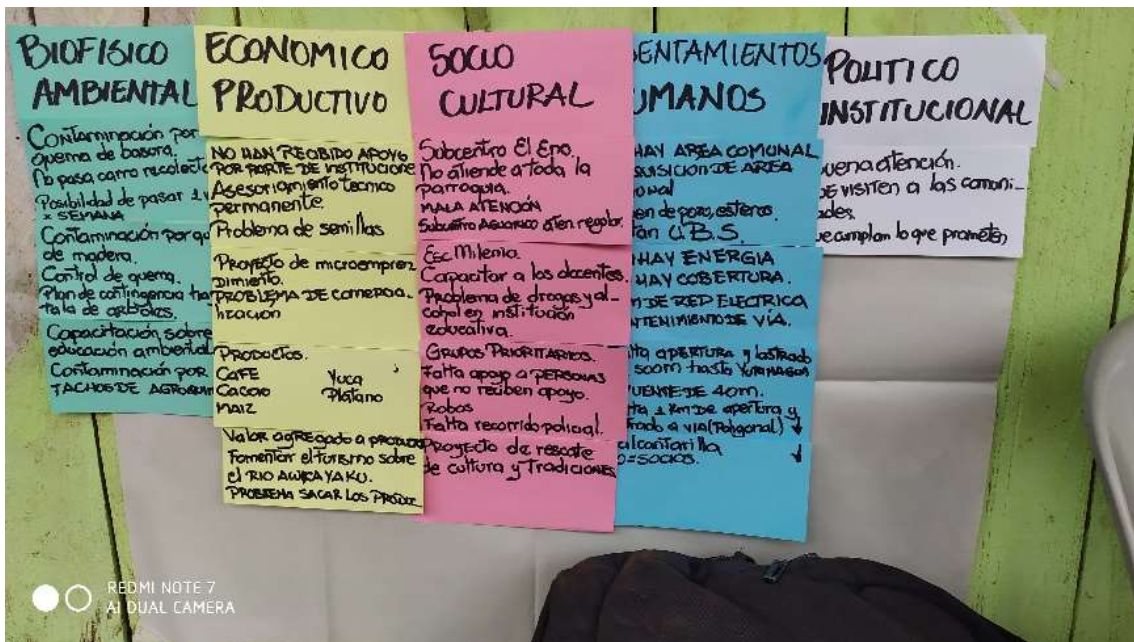 BIOFISICO
AMBIENTAL
Contaminación por
quema de basura.
No pasa carro recolecto
Posibilidad de pasar 1 v
x SEMANA
Contaminación por qu
de madera.
Control de quema.
Plan de contingencia
tala de arboles.
Capacitación sobre
educación ambiental
Contaminación por
TACHOS DE AGROQUIM
ECONOMICO
PRODUCTIVO
NO HAN RECIBIDO APOYO
POR PARTE DE INSTITUCIONE
Asesoriamiento tecnico
permanente.
Problema de semillas
PROYECTO de microempren
dimiento.
PROBLEMA DE comercia-
lización
PRODUCTOS.
CAFE Yuca
Cacao Platano
MAIZ
Valor agregado a PRODUC
Fomentar el turismo sobre
el RIO AWKAYAKU.
PROBLEMA SACAR LOS PRODUC
SOCIO
CULTURAL
Subcentro El Eno.
No atiende a toda la
parroquia.
MALA ATENCIÓN
Subcentro AGUARICO aten regular.
Esc Milenio.
Capacitar a los docentes.
Problema de drogas y al-
cohol en institución
educativa.
GRUPOS PRIORITARIOS.
Falta apoyo a PERSONAS
que no reciben apoyo.
Robos
Falta recorrido policial.
PROYECTO de rescate
de cultura y TRADICIONES
SENTAMIENTOS
UMANOS
HAY AREA COMUNAL
QUISICION DE AREA
onal
en de pozo, esteros.
tan U.B.S.
HAY ENERGIA
HAY COBERTURA.
DE RED ELECTRICA
NTENIMIENTO DE VÍA.
lta APERTURA y lastrado
500m hasta
UENTE DE 40m.
ta 1 Km DE apertura y
trado a VIA (Poligonal)
alcantarilla
O=SOCIOS.
POLITICO
INSTITUCIONAL
uena atención.
E VISITEN a las comuni-
ades.
ue cumplan lo que prometen
REDMI NOTE 7
AI DUAL CAMERA